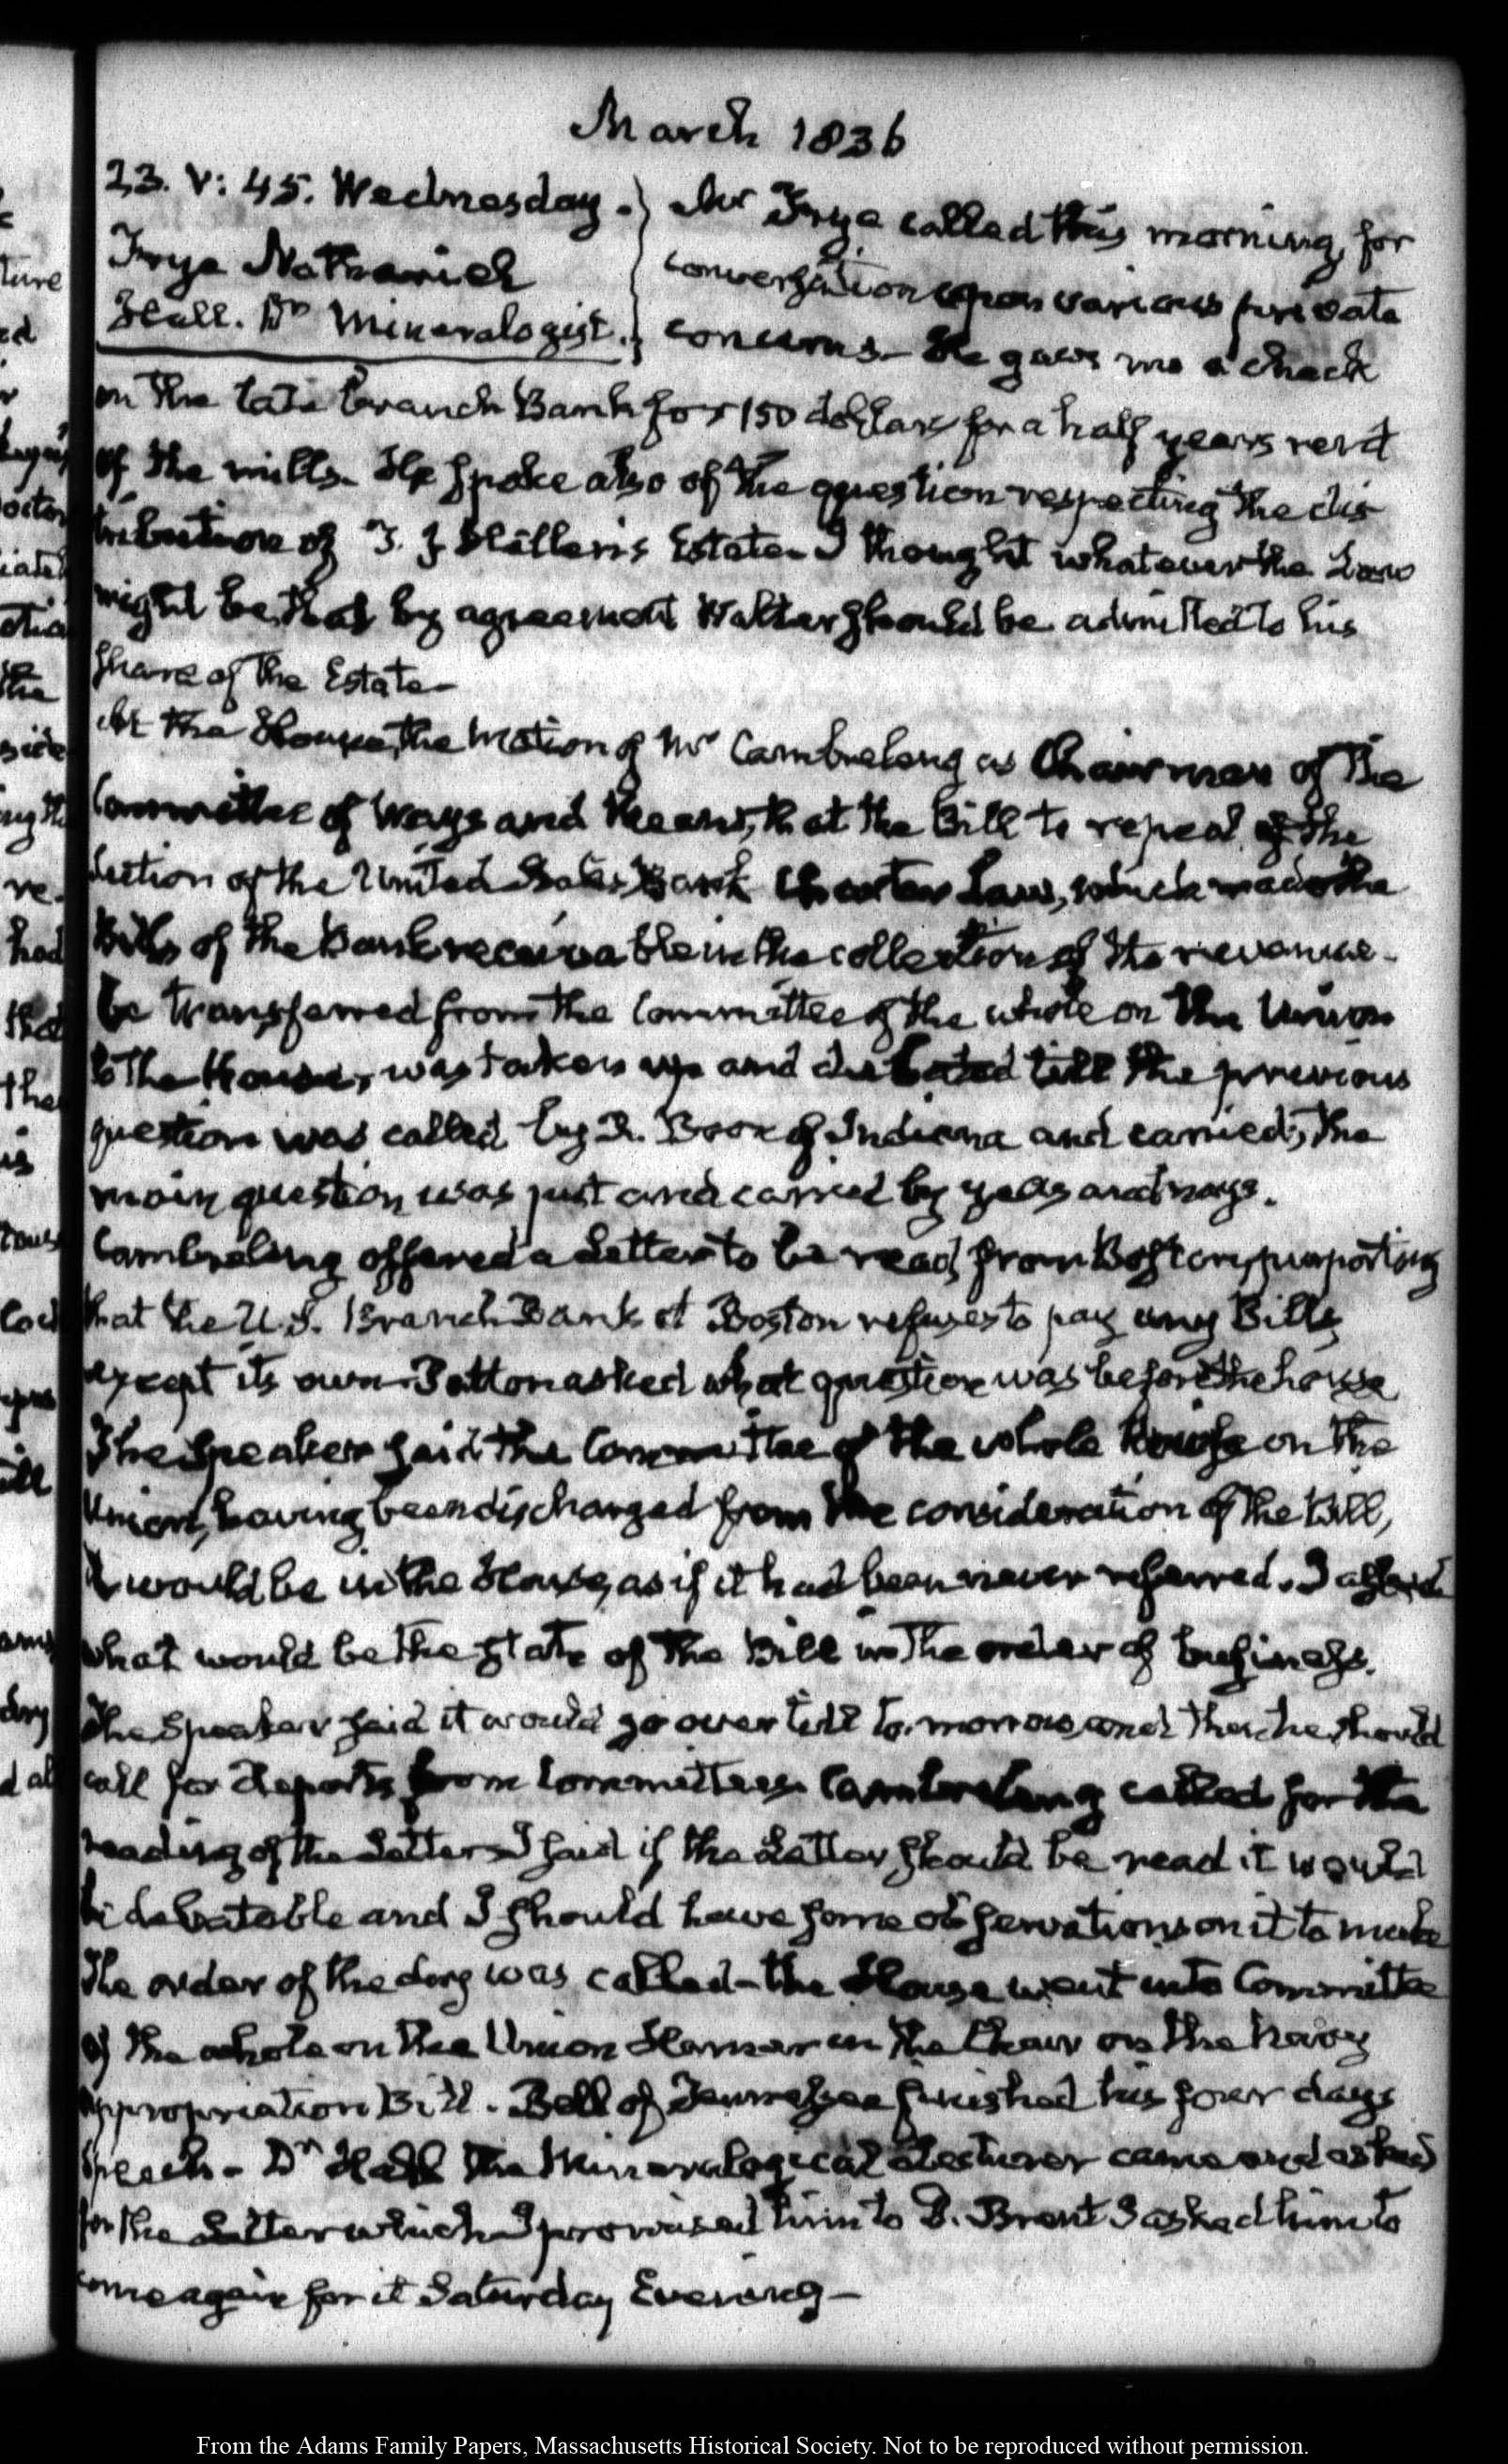 March 1836
23. V: 45. Wednesday.
Frye Nathaniel
Hall. Dr. Mineralogist.
Mr Frye called this morning, for
conversation upon various private
concerns— He gave me a check
on the late branch Bank for 150 dollars for a half years rent
of the mills. He spoke also of the question respecting the dis
tribution of T. J. Hellen's Estate— I thought whatever the Law
might be, that by agreement Walter should be admitted to his
share of the Estate—
At the House, the motion of Mr Cambreleng as Chairman of the
Committee of Ways and Means, that the Bill to repeal the
Section of the United States Bank Charter Law, which made the
Bills of the Bank receivable in the collection of the revenue—
be transferred from the Committee of the whole on the Union
to the House, was taken up and debated till the previous
question was called by R. Boon of Indiana and carried; the
main question was put and carried by yeas and nays.
Cambreleng offered a Letter to be read, from Boston, purporting
that the U.S. Branch Bank at Boston refuses to pay any Bills
except its own— Patton asked what question was before the house
The Speaker said the Committee of the whole House on the
Union, having been discharged from the consideration of the Bill,
it would be in the House, as if it had been never referred. I asked
what would be the state of the Bill in the order of business.
The Speaker said it would go over till to-morrow, and then he should
call for Reports from Committees. Cambreleng called for the
reading of the Letter— I said if the Letter should be read it would
be debatable and I should have some observations on it to make
The order of the day was called— the House went into Committee
of the whole on the Union Hamer in the Chair on the Navy
appropriation Bill. Bell of Tennessee finished his four days
speech— Dr Hall the Mineralogical Lecturer came and asked
for the Letter which I promised him to D. Brent I asked him to
come again for it Saturday Evening—
From the Adams Family Papers, Massachusetts Historical Society. Not to be reproduced without permission.